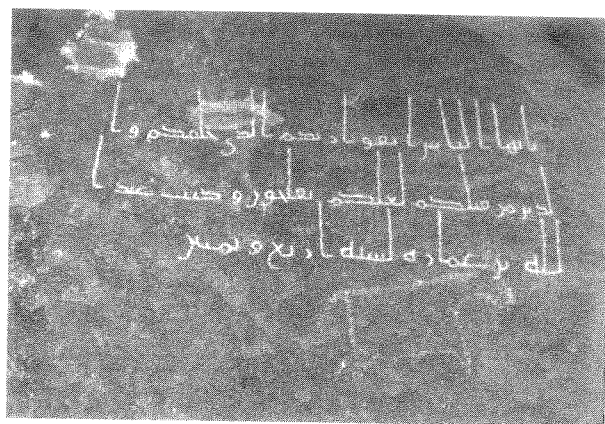 يايها الناس اتقوا ربكم الذي خلقكم وا
لذين من قبلكم لعلكم تتقون وكتب عبد ا
لله بن عماره سنه اربع وثمنين